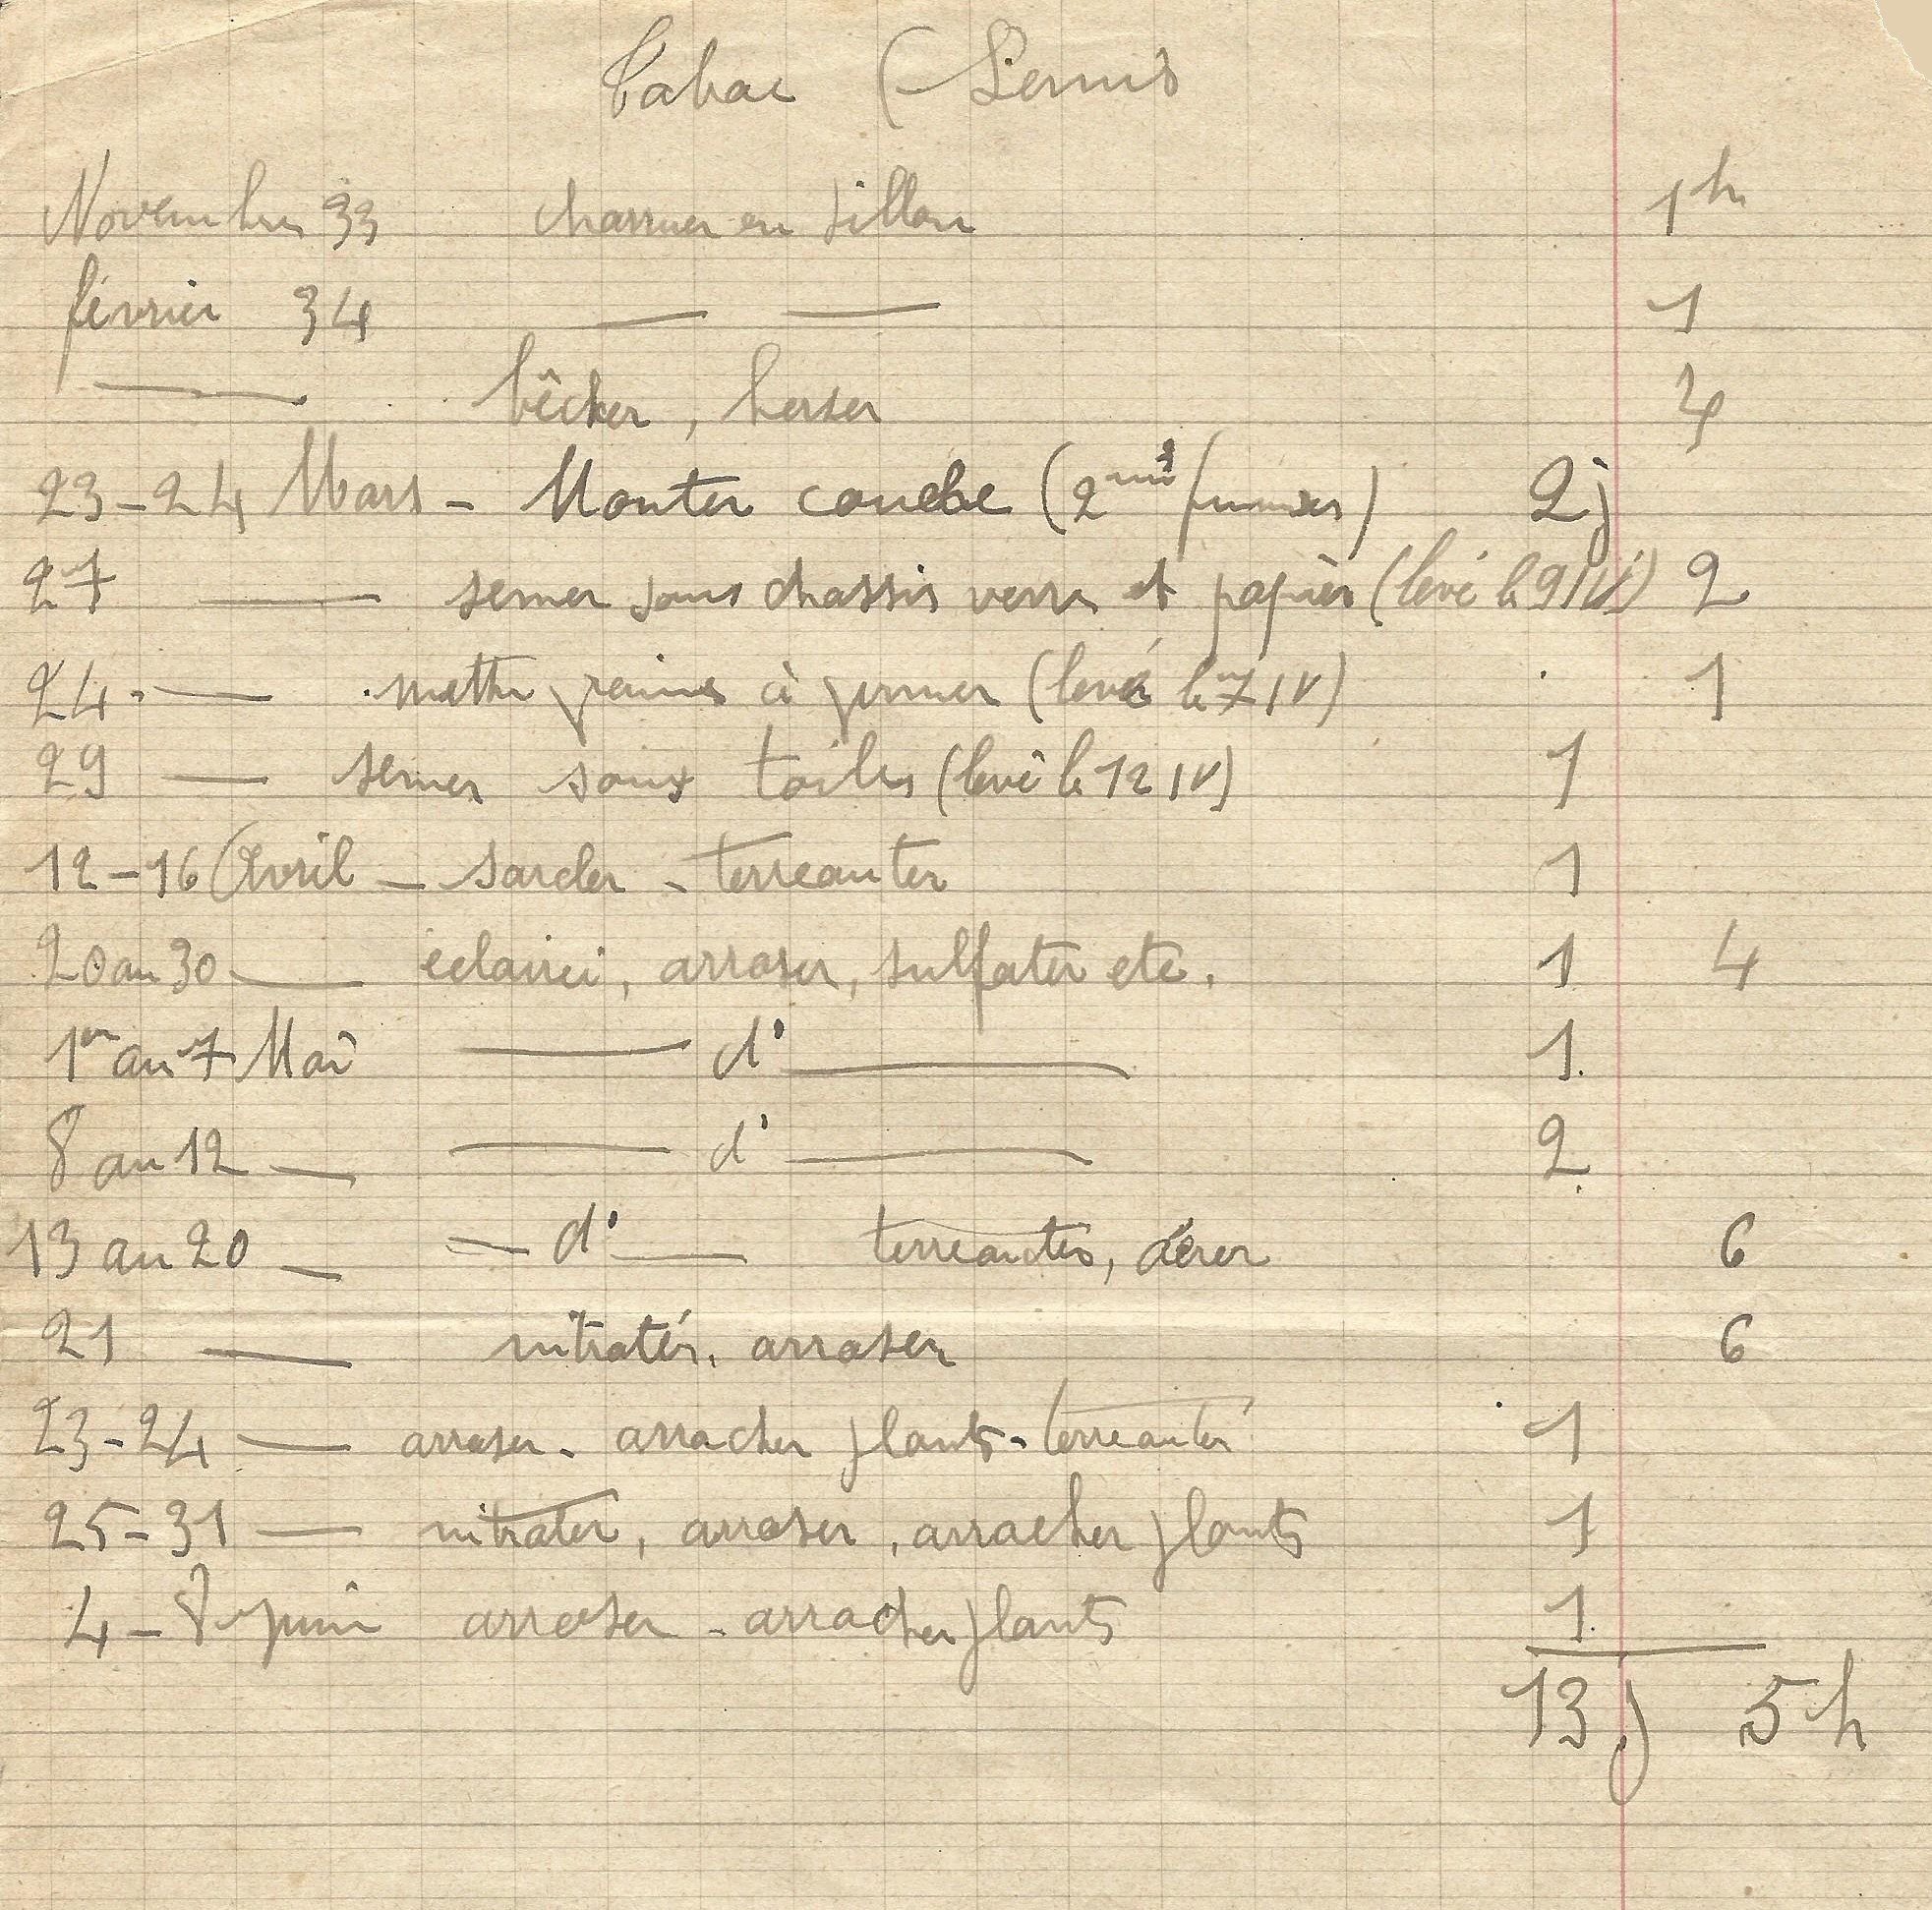 Tabac (Semis
Novembre 33 charruer en sillon 1h
février 34 — — 1
— bêcher, herser 4
23-24 Mars - Monter couche (2 fumier) 2j
27 — semer sous chassis verre et papier (levé le 9 IV) 2
24 — mettre graines à germer (levé le 7 IV) 1
29 — semer sous toiles (levé le 12 IV) 1
12-16 Avril - sarcler - terreauter 1
20 au 30 — eclairci, arroser, sulfater etc. 1 4
1er au 7 Mai — d° — 1
8 au 12 — — d° — 2
13 au 20 — — d° — terreauter, aérer 6
21 — nitrater, arroser 6
23-24 — arroser - arracher plants - terreauter 1
25-31 — nitrater, arroser, arracher plants 1
4-8 juin arroser - arracher plants 1
13j 5h